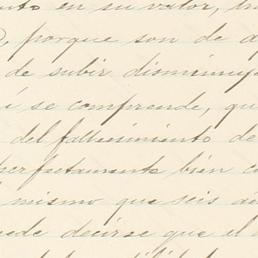 to en su valor,
porque son de
de subir disminuye
í se comprende, qu
del fallecimiento de
perfectamente bien
mismo que seis
uede decirse que el